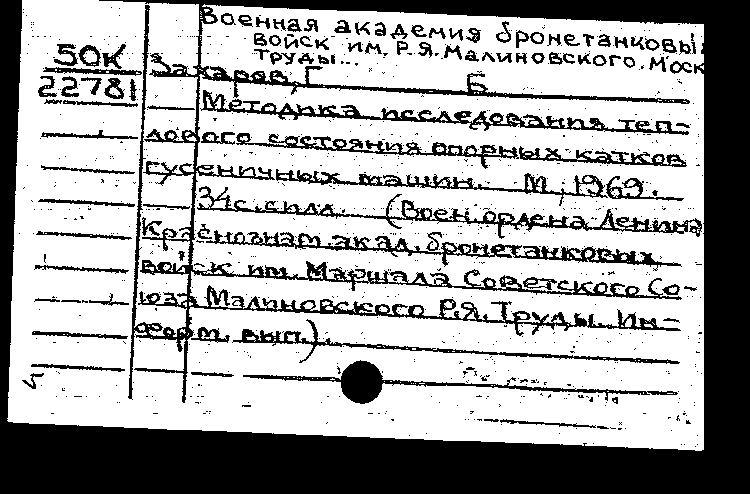 Военная академия бронетанковы
войск им. Р.Я. Малиновского. Моск
Труды...
50К
22781
Захаров, Г Б
Методика исследования теп-
лового состояния опорных катков
гусеничных машин. М., 1969.
34с. с илл. (Воен. ордена Ленина
Краснознам. акад. бронетанковых
войск им. Маршала Советского Со-
юза Малиновского Р.Я. Труды. Ин-
форм. вып.).